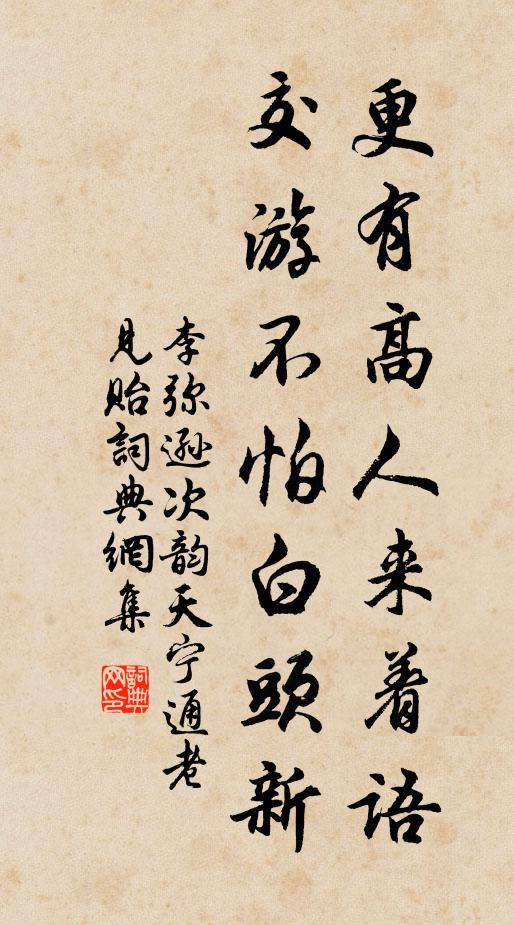 更有高人来着语
交游不怕白頭新
李弥遜次韵天宁通老
見貽詞典網集
詞典网印